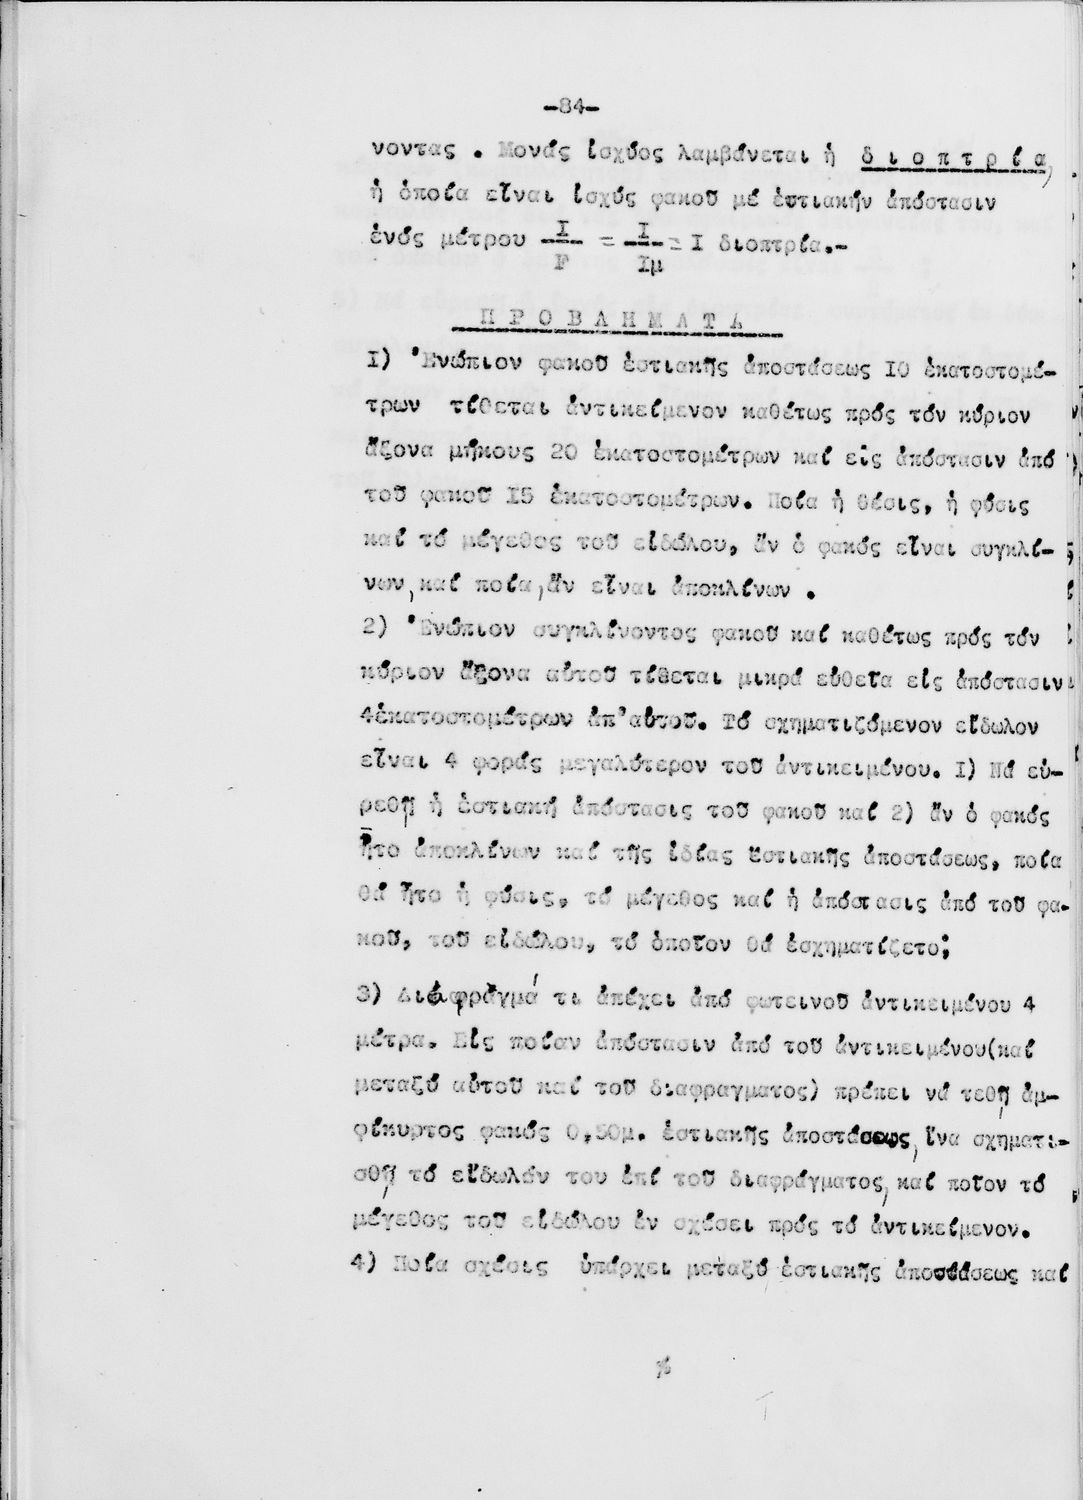 -84-
νοντας . Μονάς ἰσχύος λαμβάνεται ἡ διοπτρία,
ἡ ὁποία εἶναι ἰσχύς φακοῦ μέ ἑστιακήν ἀπόστασιν
ἑνός μέτρου I/F = I/Iμ = I διοπτρία.-
ΠΡΟΒΛΗΜΑΤΑ
I) Ἐνώπιον φακοῦ ἑστιακῆς ἀποστάσεως IO ἑκατοστομέ-
τρων τίθεται ἀντικείμενον καθέτως πρός τόν κύριον
ἄξονα μήκους 20 ἑκατοστομέτρων καί εἰς ἀπόστασιν ἀπό
τοῦ φακοῦ I5 ἑκατοστομέτρων. Ποία ἡ θέσις, ἡ φύσις
καί τό μέγεθος τοῦ εἰδώλου, ἄν ὁ φακός εἶναι συγκλί-
νων, καί ποία, ἄν εἶναι ἀποκλίνων .
2) Ἐνώπιον συγκλίνοντος φακοῦ καί καθέτως πρός τόν
κύριον ἄξονα αὐτοῦ τίθεται μικρά εὐθεῖα εἰς ἀπόστασιν
4ἑκατοστομέτρων ἀπ'αὐτοῦ. Τό σχηματιζόμενον εἴδωλον
εἶναι 4 φοράς μεγαλύτερον τοῦ ἀντικειμένου. I) Νά εὑ-
ρεθῇ ἡ ἑστιακή ἀπόστασις τοῦ φακοῦ καί 2) ἄν ὁ φακός
ἦτο ἀποκλίνων καί τῆς ἰδίας ἑστιακῆς ἀποστάσεως, ποία
θά ἦτο ἡ φύσις, τό μέγεθος καί ἡ ἀπόστασις ἀπό τοῦ φα-
κοῦ, τοῦ εἰδώλου, τό ὁποῖον θά ἐσχηματίζετο;
3) Διάφραγμά τι ἀπέχει ἀπό φωτεινοῦ ἀντικειμένου 4
μέτρα. Εἰς ποίαν ἀπόστασιν ἀπό τοῦ ἀντικειμένου(καί
μεταξύ αὐτοῦ καί τοῦ διαφραγματος) πρέπει νά τεθῇ ἀμ-
φίκυρτος φακός 0,50μ. ἑστιακῆς ἀποστάσεως, ἵνα σχηματι-
σθῇ τό εἴδωλόν του ἐπί τοῦ διαφράγματος, καί ποῖον τό
μέγεθος τοῦ εἰδώλου ἐν σχέσει πρός τό ἀντικείμενον.
4) Ποία σχέσις ὑπάρχει μεταξύ ἑστιακῆς ἀποστάσεως καί